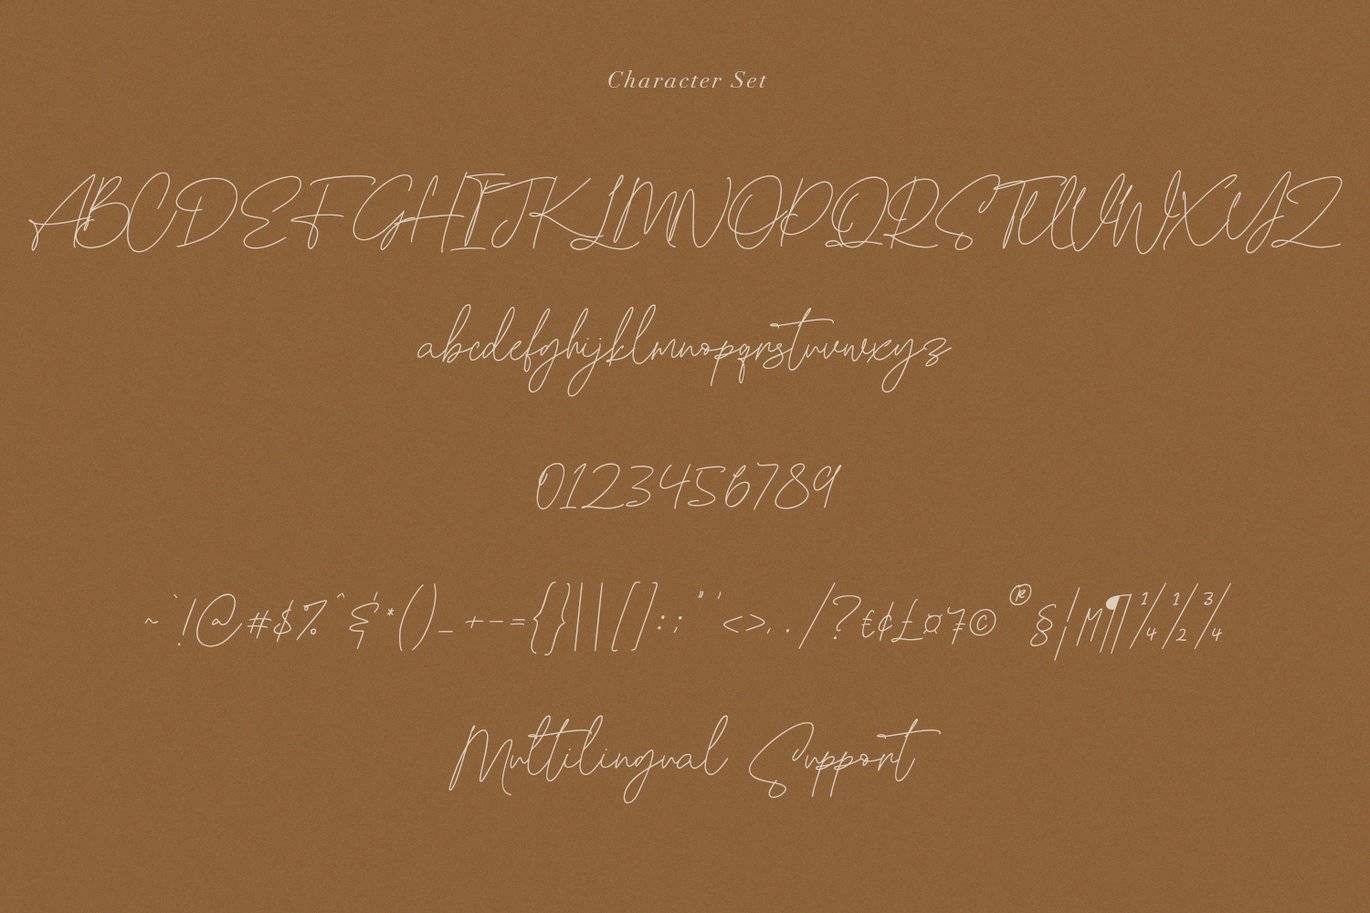 Character Set
ABCDEFGHIJKLMNOPQRSTUVWXYZ
abcdefghijklmnopqrstuvwxyz
0123456789
~ ` ! @ # $ % ^ & * ( ) _ + - = { } | | [ ] : ; " ' < > , . / ? € ¢ £ ¤ © ® § ¦ ¶ 1/4 1/2 3/4
Multilingual Support